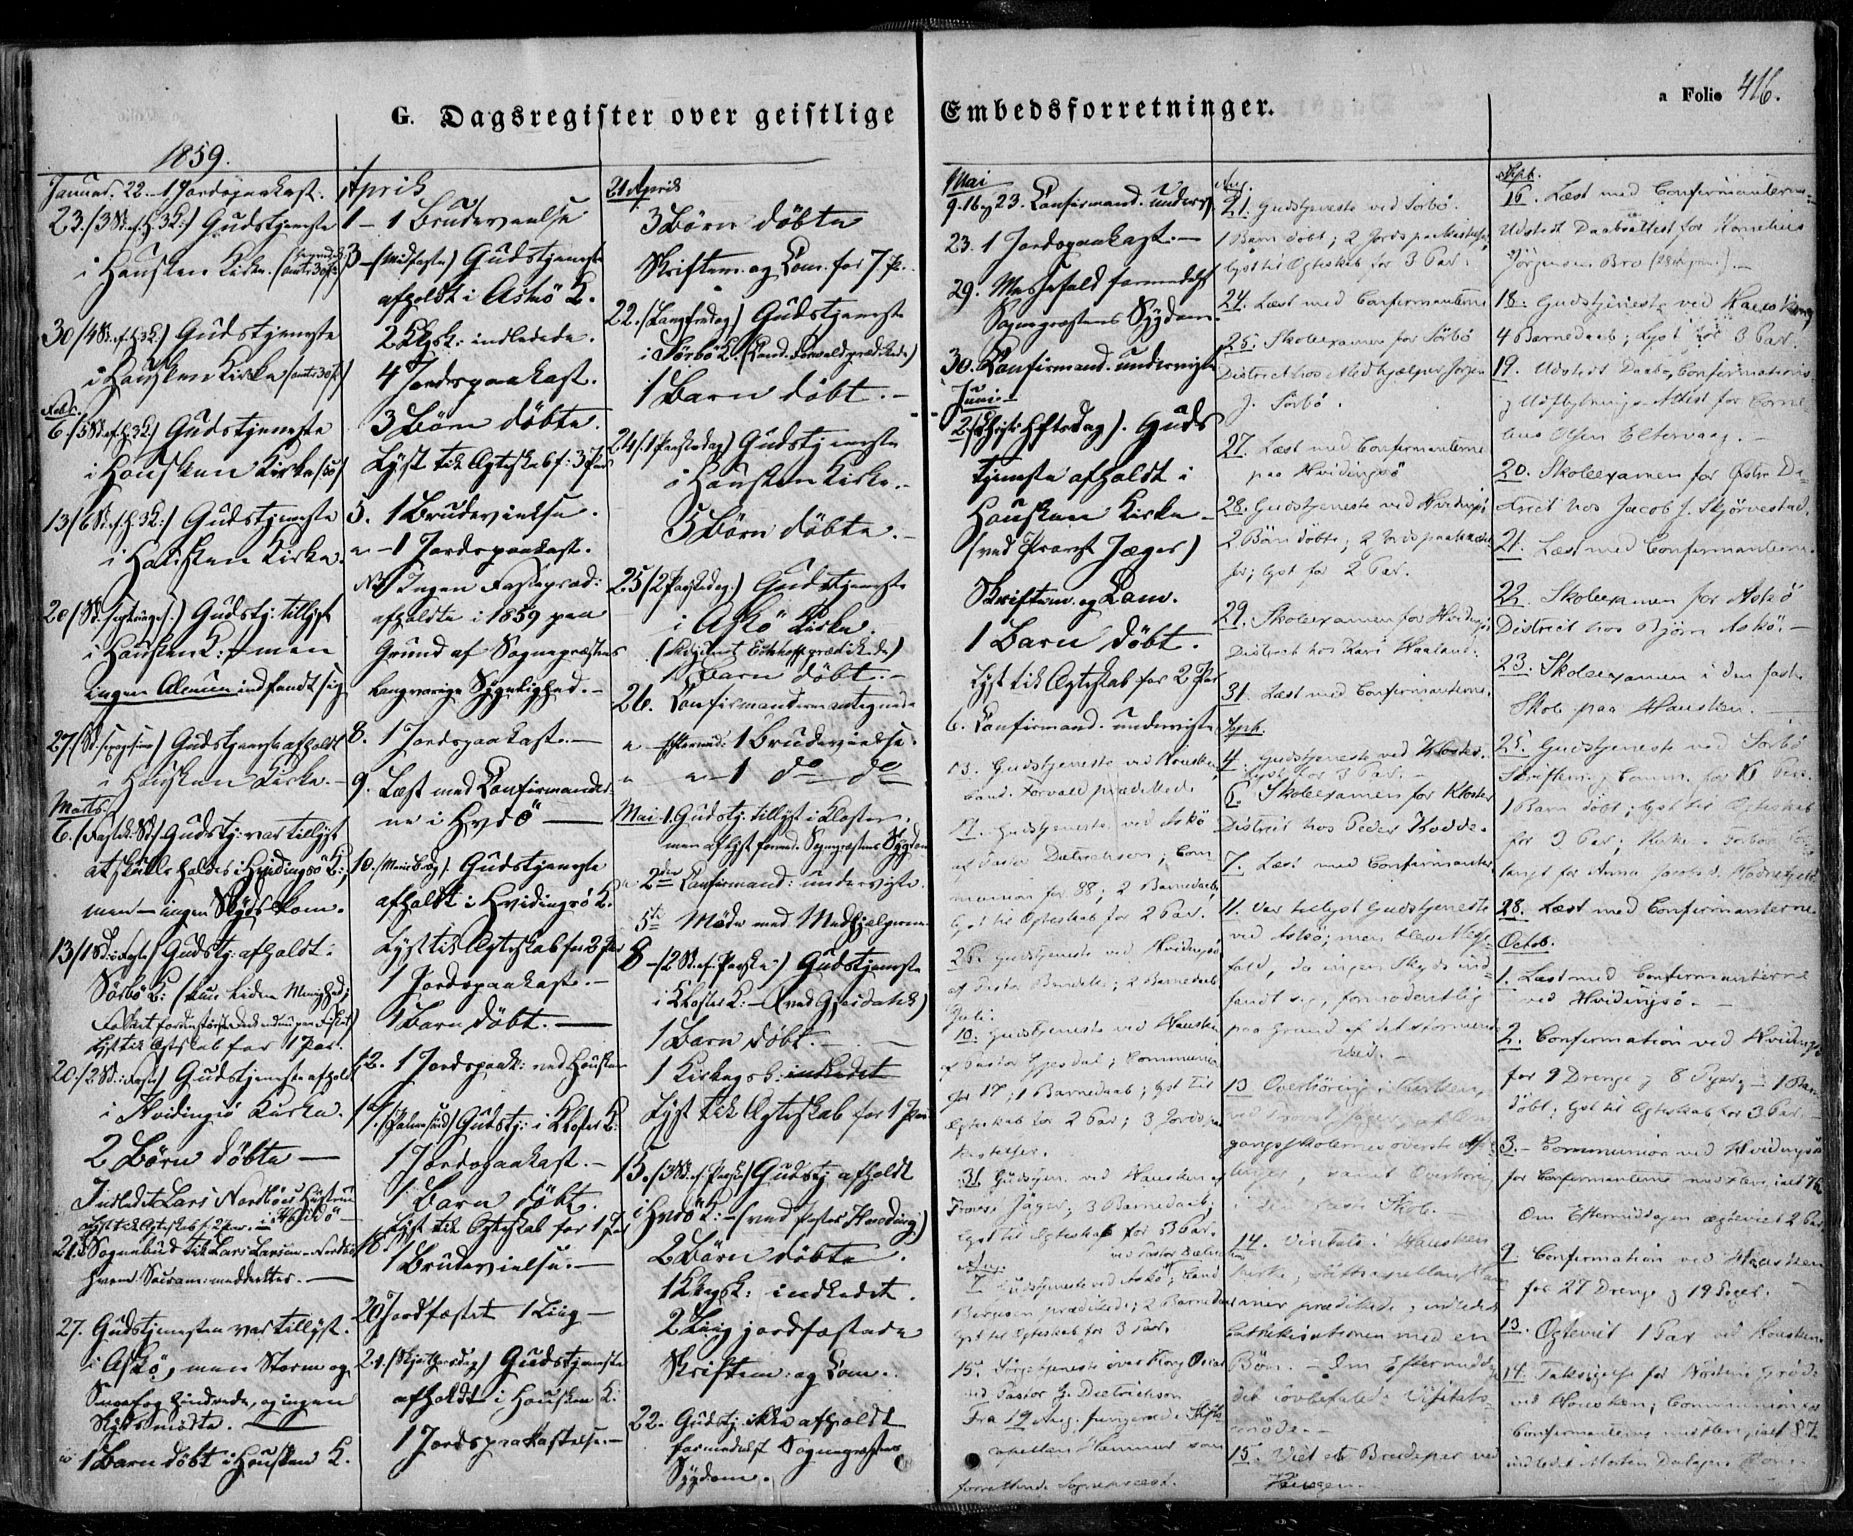 G. Dagsregister over geistlige Embedsforretninger.
a Folio 416.
1859.
Januar. 22. 1 Jordspaakast.
23. (3 S. ef. H3K:) Gudstjeneste
i Hausken Kirke.
30 (4 S. ef. H3K) Gudstjeneste
i Hausken Kirke
Febr.
6. (5 S. ef. H3K) Gudstjeneste
i Hausken Kirke
13. (6 S. ef. H3K:) Gudstjeneste
i Hausken Kirke.
20 Gudstj: tillyst
i Hausken K: men
ingen Almue indfandt sig
27. Gudstjeneste afholdt
i Hausken Kirke.
Marts
6. Gudstj: var tillyst
at skulle holdes i Hvidingsö K:,
men ingen Skyds kom.
13 (1 S. i Faste) Gudstj: afholdt i
Sörbö K: (kun liden Menighed;
Lyst til Ægteskab for 1 Par.
20. (2 S. i Faste) Gudstjeneste afholdt
i Hvidingsö Kirke.
2 Börn döbte —
Indledet Lars Hustru
Lyst til Ægteskab f. 2 Par
21. Sognebud til Lars Larsen
hvem Sacram: meddeltes. —
27. Gudstjenesten var tillyst
i Askö, men Storm og
Snefog hindrede, og ingen
Skyds mödte. —
1 Barn döbt i Hausken K.
April
1 – 1 Brudevielse
3 – (Midfaste) Gudstjeneste
afholdt i Askö K.
2 Kjsk: indledede.
4 Jordspaakast.
3 Börn döbte.
Lyst til Ægteskab f: 3 Par
5. 1 Brudevielse.
" – 1 Jordspaakast.
NB Ingen Fastepræd:
afholdte i 1859 paa
Grund af Sognepræstens
langvarige Sygelighed. –
8. 1 Jordspaakast. —
9. Læst med Confirmander-
ne i Hvdö —
10. Gudstjeneste
afholdt i Hvidingsö K.
Lyst til Ægteskab for 2 Par
1 Jordspaakast. —
1 Barn döbt. —
12. 1 Jordspaak: ved Hausken
17. (Palmesönd) Gudstj: i Kloster K:
1 Jordspaakast. –
1 Barn döbt.
Lyst til Ægteskab for 1 Par
18. 1 Brudevielse. —
20 Jordfæstet 1 Liig —
21. (Skjærthorsdag) Gudstjeneste
afholdt i Hausken K:
1 Jordspaakastelse. —
21 April
3 Börn döbte
Skriftem. og Com. for 7 P.
22. (Langfredag) Gudstjeneste
i Sörbö K. (Cand. Forwald prædikede)
1 Barn döbt. –
24. (1 Paaskedag) Gudstjeneste
i Hausken Kirke. –
5 Börn döbte. –
25 (2 Paaskedag.) Gudstjeneste
i Askö Kirke.
1 Barn döbt. –
26. Confirmanderne antegnede
" – Eftermid: 1 Brudevielse.
" " – 1 do do
Mai 1. Gudstj: tillyst i Kloster,
men aflyst formed. Sognepræstens Sygdom
2den Confirmand: undervist.
5te Möde med Medhjelperne
8 – (2 S. ef. Paaske) Gudstjeneste
i Kloster K. – (ved Gjesdahl)
1 Barn döbt. —
1 Kirkegk: indledet
Lyst til Ægteskab for 1 Par
15. (3 S. ef. Paaske) Gudstj: afholdt
i Hvdö K: –
2 Börn döbte.
1 Kirkegk: indledet.
2 Liig jordfæstede
Skriftem: og Com:.
22. Gudstj: ikke afholdt
formedelst Sognepræstens
Sygdom.
Mai
9. 16 og 23. Confirmand. underv.
23. 1 Jordspaakast. —
29. Messefald formedelst
Sognepræstens Sygdom.
30. Confirmand. undervist
Juni
2 (Christi Hfartsdag). Guds
tjeneste afholdt i
Hausken Kirke –
(ved Provst Jæger)
Skriftem. og Com.
1 Barn döbt.
Lyst til Ægteskab for 2 Par
6. Confirmand. undervist
13. Gudstjeneste ved Hausken
Cand. Forvald prædikede
17. Gudstjeneste ved Askö
af Pastor Dietrichson; Com-
munion for 88; 2 Barnedaab,
lyst til Ægteskab for 2 Par.
26. Gudstjeneste ved Hvidingsö
af Pastor 2 Barnedaab
Juli.
10. Gudstjeneste ved Hausken
af Pastor Gjesdal; Communion
for 17; 1 Barnedaab; lyst til
Ægteskab for 2 Par; 3 Jordspaa-
kastelser.
31. Gudstjen. ved Hausken af
Provst Jäger; 3 Barnedaab;
lyst til Ægteskab for 3 Par.
Aug.
7 Gudstjeneste ved Askö,
prædikede; 2 Barnedaab
lyst til Ægteskab for 3 Par.
15. Sörgetjeneste over Kong Oscar
ved Pastor G. Dietrichson
Fra 19 Aug. fungerede Stifts-
capellan Hammer som
forrettende Sognepræst.
Aug.
21. Gudstjeneste ved Sörbö.
1 Barn döbt; 2 Jordspaakastelser
lyst til Ægteskab for 3 Par.
24. Læst med Confirmanterne
25. Skoleexamen for Sörbö
District hos Medhjælper Jörgen
J. Sörbö.
27. Læst med Confirmanterne
paa Hvidingsö
28. Gudstjeneste ved Hvidingsö
2 Börn döbte; 2 Jordspaakastel-
ser; lyst for 2 Par.
29. Skoleexamen for Hvidingsö
District hos Kari Haaland.
31. Læst med Confirmanterne.
Sept.
4. Gudstjeneste ved Kloster.
lyst for 3 Par. –
6. Skoleexamen for Kloster
District hos Peder Hodde.
7. Læst med Confirmanterne
11. Var tillyst Gudstjeneste
ved Askö; men blev Messe-
fald, da ingen Skyds ind-
fandt sig, formodentlig
paa Grund af det stormende
Veir. –
13 Overhöring i Hausken,
ved Provst Jäger, af Om-
gangsskolernes överste Af-
delinger, samt Overhöring
i den faste Skole. –
14. Visitats i Hausken
Kirke; Stiftscapellan Ham-
mer prædikede, indledet
Cathekisationen med en
Bön. – Om Eftermiddag
det lovbefalede Visitats-
möde. –
15. Viet et Brudepar ved
Haugen. –
Sept.
16. Læst med Confirmanterne.
Udstedt Daabsattest for Kornelius
Jörgensen Bro –
18. Gudstjeneste ved Hausken
4 Barnedaab; lyst for 3 Par.
19. Udstedt Daabs, Confirmations-
og Udflytnings-Attest for Corne-
lius Olsen Eltervaag. –
20. Skoleexamen for Östre Di-
strict hos Jacob J. Skjörvestad.
21. Læst med Confirmanterne.
22. Skoleexamen for Askö
District hos Björn Askö. –
23. Skoleexamen i den faste
Skole paa Hausken. —
25. Gudstjeneste ved Sörbö
Skriftem. og Comm. for
1 Barn döbt; lyst til Ægteskab
for 3 Par;
28. Læst med Confirmanterne
Octob.
1. Læst med Confirmanterne
ved Hvidingsö. –
2. Confirmation ved Hvidingsö
for 9 Drenge og 8 Piger – 1 Barn
döbt; lyst til Ægteskab for 3 Par. –
3. – Communion ved Hvidingsö
for Confirmanterne med flere, ialt 76
Om Eftermiddagen ægteviet 2 Par
9. Confirmation ved Hausken
for 27 Drenge og 19 Piger.
13. Ægteviet 1 Par ved Hausken.
14. Taksigelse for Höstens Gröde
ved Hausken; Communion for
Confirmanterne med flere, ialt 87.
indledet Morten